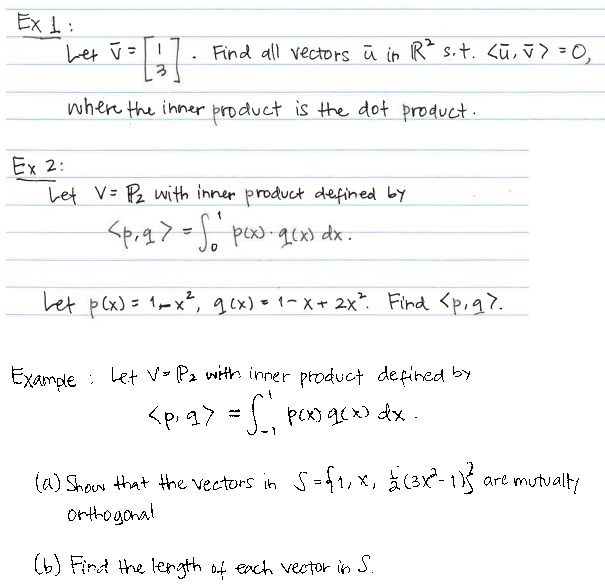 Ex 1:
Let v̄ = [1 3]. Find all vectors ū in ℝ² s.t. <ū, v̄> = 0,
where the inner product is the dot product.
Ex 2:
Let V = ℙ₂ with inner product defined by
<p,q> = ∫₀¹ p(x)·q(x) dx.
Let p(x) = 1-x², q(x) = 1-x+2x². Find <p,q>.
Example : Let V=ℙ₂ with inner product defined by
<p,q> = ∫₋₁¹ p(x) q(x) dx.
(a) Show that the vectors in S = {1, x, ½(3x²-1)} are mutually
orthogonal
(b) Find the length of each vector in S.